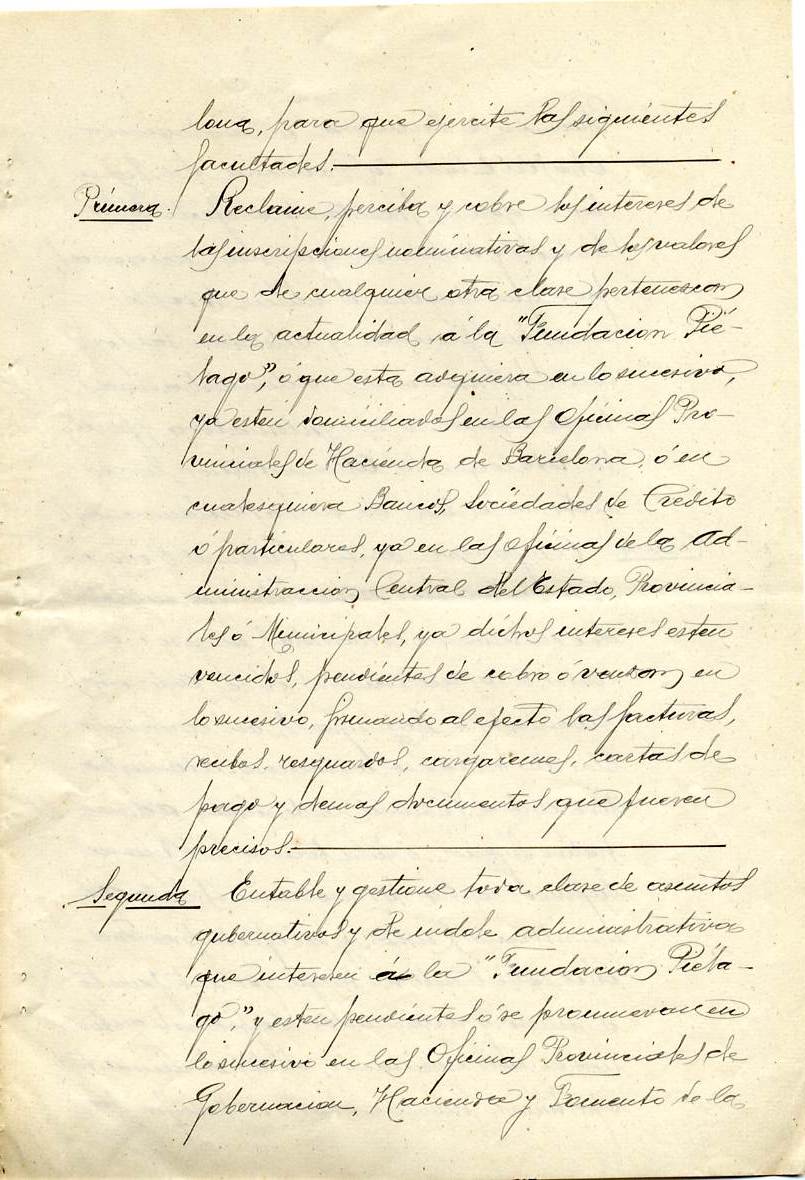 lona, para que ejercite las siguientes
facultades.
Primera. Reclame, perciba y cobre los intereses de
las inscripciones nominativas y de los valores
que de cualquier otra clase pertenezcan
en la actualidad á la "Fundacion Pié-
tago", ó que esta adquiera en lo sucesivo,
ya esten domiciliados en las Oficinas Pro-
vinciales de Hacienda de Barcelona, ó en
cualesquiera Bancos, Sociedades de Crédito
ó particulares, ya en las oficinas de la Ad-
ministraccion Central del Estado, Provincia-
les ó Municipales, ya dichos intereses esten
vencidos, pendientes de cobro ó venzan en
lo sucesivo, firmando al efecto las facturas,
recibos, resguardos, cargaremes, cartas de
pago y demas documentos que fueren
precisos.
Segunda Entable y gestione toda clase de asuntos
gubernativos y de indole administrativa
que interesen á la "Fundacion Piéta-
go," y esten pendientes ó se promuevan en
lo sucesivo en las Oficinas Provinciales de
Gobernacion, Hacienda y Fomento de la